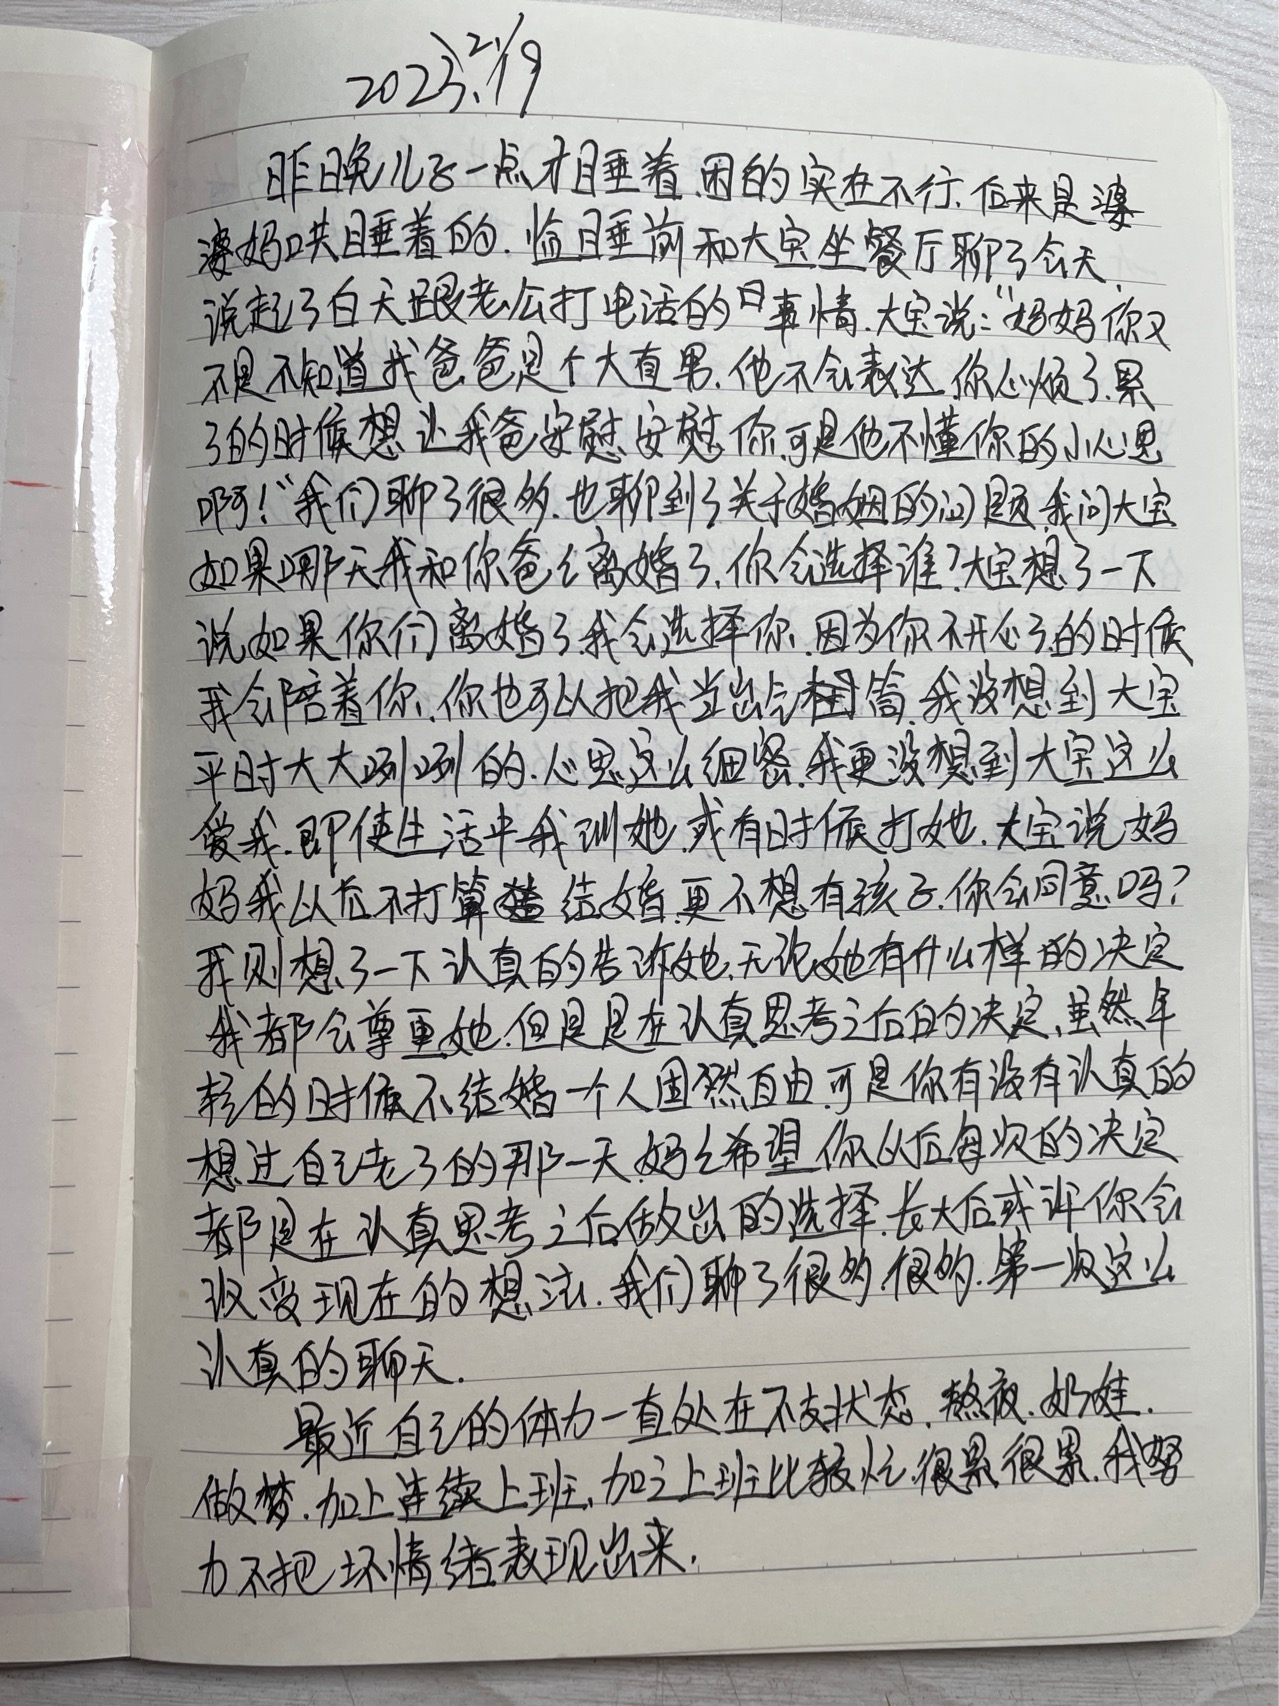 2023.2.19
昨晚儿子一点才睡着.困的实在不行.后来是婆
婆妈哄睡着的.临睡前和大宝坐餐厅聊了会天.
说起了白天跟老公打电话的事情.大宝说:“妈妈你又
不是不知道我爸爸是个大直男.他不会表达.你心烦了.累
了的时候想让我爸安慰安慰你.可是他不懂你的小心思
啊!”我们聊了很多.也聊到了关于婚姻的问题.我问大宝
如果哪天我和你爸爸离婚了.你会选择谁?大宝想了一下
说如果你们离婚了我会选择你.因为你不开心了的时候
我会陪着你.你也可以把我当出气筒.我没想到大宝
平时大大咧咧的.心思这么细密.我更没想到大宝这么
爱我.即使生活中我训她.或有时候打她.大宝说妈
妈我以后不打算结婚.更不想有孩子.你会同意吗?
我则想了一下认真的告诉她.无论她有什么样的决定
我都会尊重她.但是是在认真思考之后的决定.虽然年
轻的时候不结婚一个人固然自由.可是你有没有认真的
想过自己老了的那一天.妈妈希望你以后每次的决定
都是在认真思考之后做出的选择.长大后或许你会
改变现在的想法.我们聊了很多.很多.第一次这么
认真的聊天.
最近自己的体力一直处在不支状态.熬夜.奶娃.
做梦.加上连续上班.加之上班比较忙.很累很累.我努
力不把坏情绪表现出来.